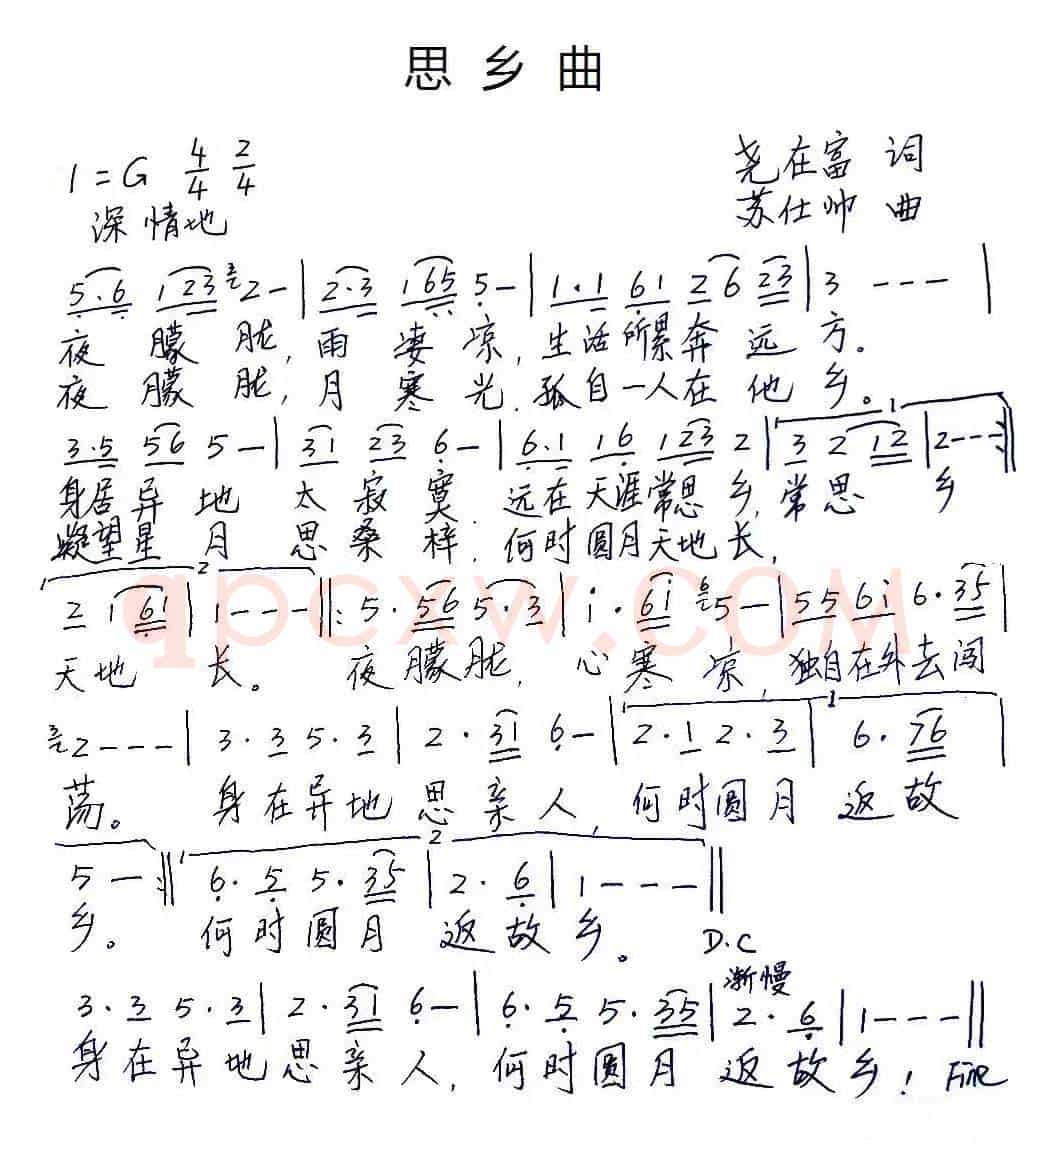 思乡曲
1=G 4/4 2/4
尧在富 词
深情地
苏仕帅 曲
5·6 123 3 2- | 2·3 165 5- | 1·1 61 26 23 | 3 --- |
夜朦胧,雨凄凉,生活所累奔远方。
夜朦胧,月寒光,孤自一人在他乡。
1
3·5 56 5- | 31 23 6- | 6·1 16 123 2 | 3 2 12 | 2--- :||
身居异地太寂寞,远在天涯常思乡,常思乡
凝望星月思桑梓,何时圆月天地长,
2
2 1 61 | 1--- ||: 5·56 5·3 | i·6i 6 5- | 55 6i 6·35 |
天地长。夜朦胧,心寒凉,独自在外去闯
1
3 2--- | 3·3 5·3 | 2·31 6- | 2·1 2·3 | 6·76 |
荡。身在异地思亲人,何时圆月返故
2
5- :|| 6·5 5·35 | 2·6 | 1--- ||
乡。何时圆月返故乡。 D.C
渐慢
3·3 5·3 | 2·31 6- | 6·5 5·35 | 2·6 | 1--- ||
身在异地思亲人,何时圆月返故乡! Fine
qpcxw.COM